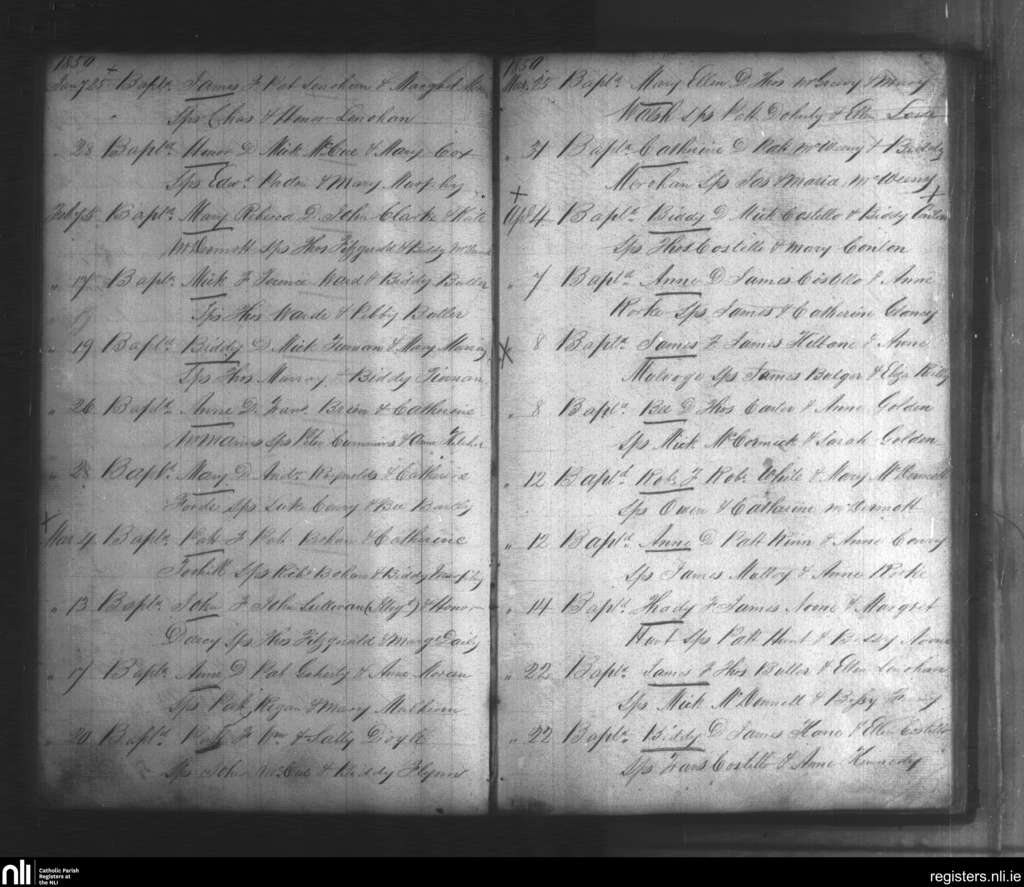 1850
Jany 25 Bapt. James F Pat Lenohan & Margret
Sps Chas & Honor Lenohan
" 28 Bapt. Honor D Mick McCue & Mary Cox
Sps Edwd. & Mary Murphy
Feby 5 Bapt. Mary Rebecca D. John Clarke & Kate
McDermott Sps Thos Fitzgerald & Biddy
" 17 Bapt. Mick F Terence Ward & Biddy Butler
Sps Thos Warde & Libby Butler
" 19 Bapt. Biddy D Mick Finnan & Mary Murray
Sps Thos Murray Biddy Finnan
" 26 Bapt. Anne D. Frank Brien & Catherine
McManus Sps Peter Cummins & Anne
" 28 Bapt. Mary D Andw Reynolds & Catherine
Forde Sps Luke Conry & Bee
Mar 4 Bapt. Pat F Pat Bohan & Catherine
Sps Bohan & Biddy Murphy
" 13 Bapt. John F John Sullivan & Honor
Darcy Sps Thos Fitzgerald & Margt Daily
" 17 Bapt. Anne D Pat Goherty & Anne Moran
Sps Pat Regan & Mary
" 20 Bapt. F Wm & Sally Doyle
Sps John McCue & Biddy Flynn
1850
Mar. 25 Bapt. Mary Ellen D Thos & Mary
Walsh Sps Patt Doherty & Ellen
" 31 Bapt. Catherine D Pat McWeeny & Biddy
Sps Jas & Maria McWeeny
Apl 4 Bapt. Biddy D Mick Costello & Biddy Conlon
Sps Thos Costello & Mary Conlon
" 7 Bapt. Anne D James Costello & Anne
Rorke Sps James & Catherine Conry
" 8 Bapt. James F James Kilbane & Anne
Mulrooge Sps James Bulger & Eliza
" 8 Bapt. Bee D Thos Carter & Anne Golden
Sps Mick McCormick & Sarah Golden
" 12 Bapt. Robt. F Robt. White & Mary McDermott
Sps Owen & Catherine McDermott
" 12 Bapt. Anne D Patt & Anne Conry
Sps James Malloy & Anne Rorke
" 14 Bapt. Thady F James Noone & Margret
Hunt Sps Patt Hunt & Biddy Noone
" 22 Bapt. James F Thos Butler & Ellen Lenohan
Sps Mick McDonnell & Bessy
" 22 Bapt. Biddy D James Hane & Ellen Costello
Sps Frans Costello & Anne Kennedy
nli Catholic Parish
Registers at
the NLI
registers.nli.ie